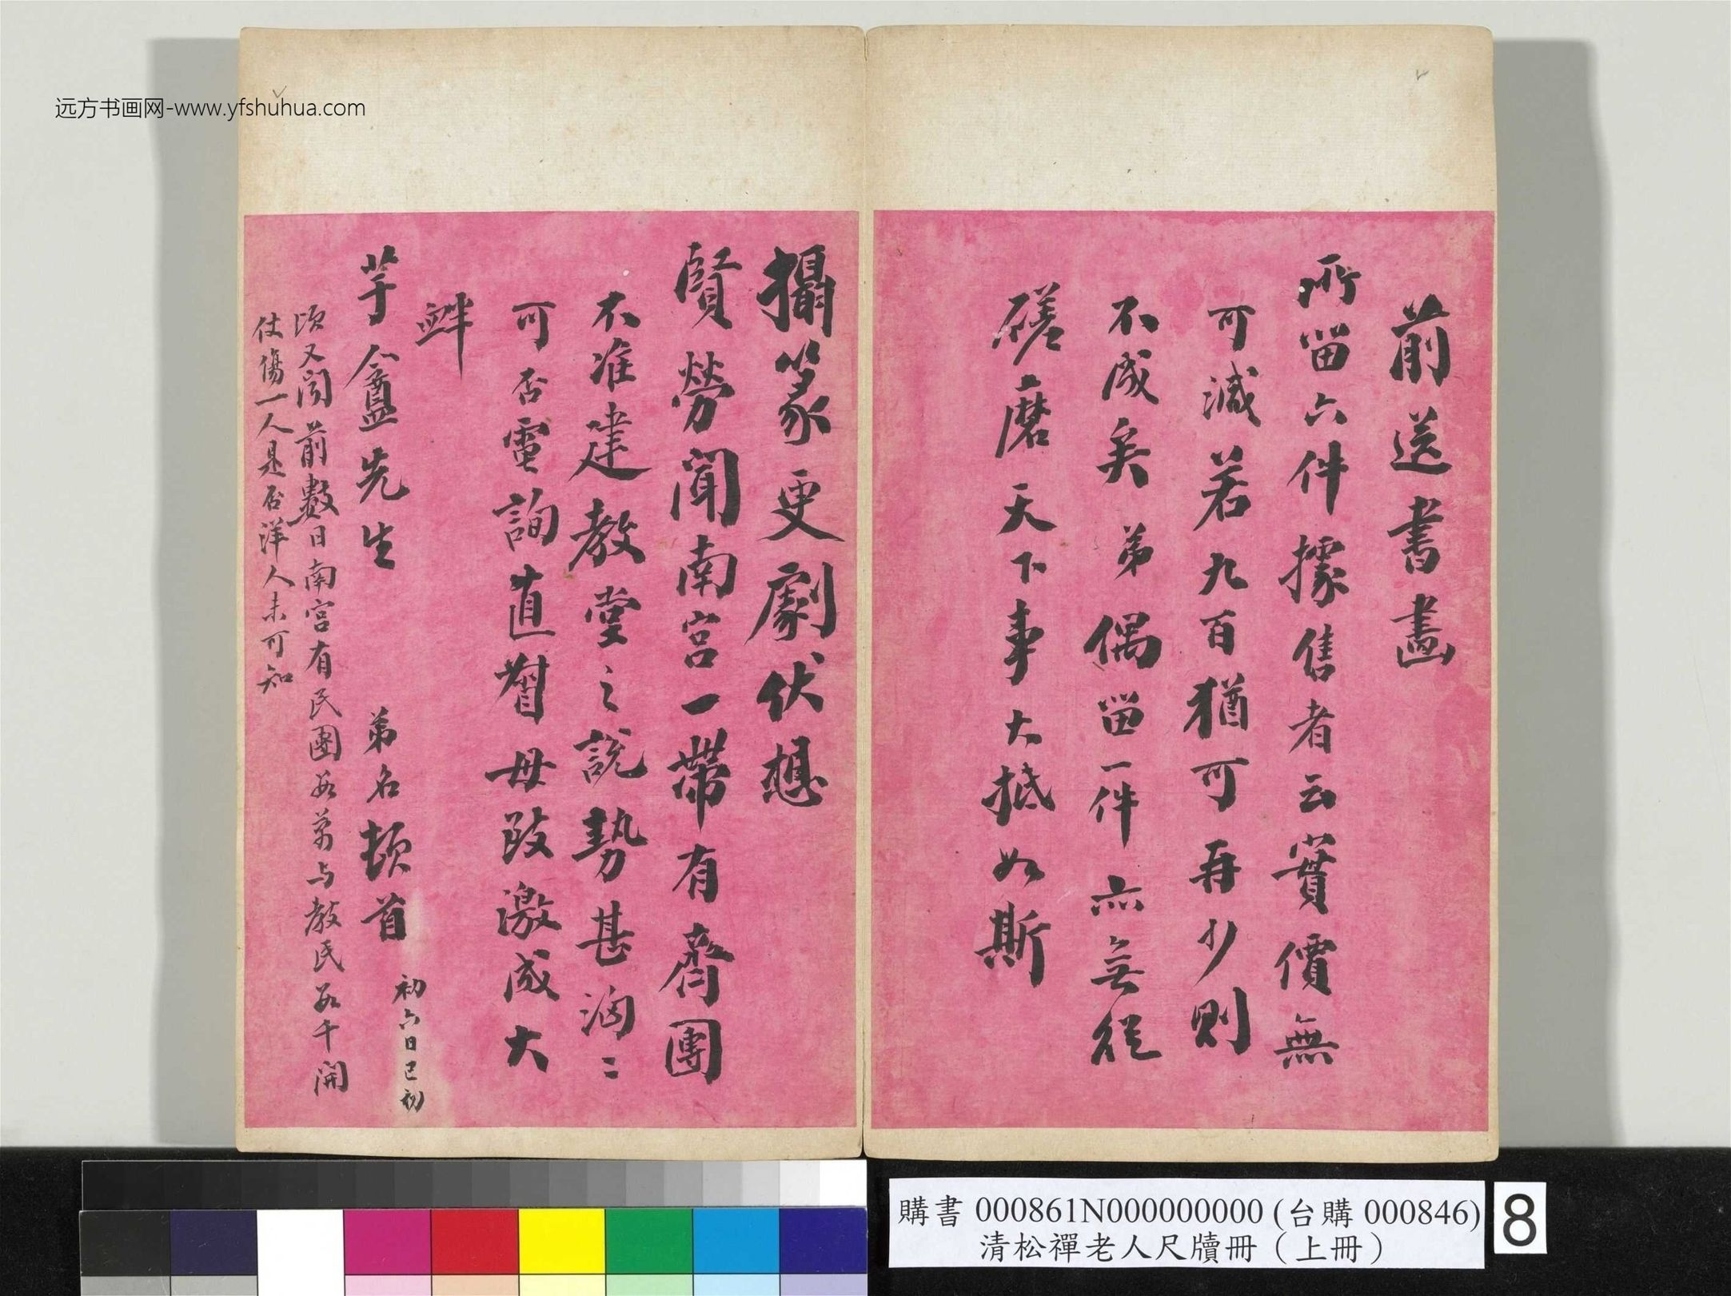 远方书画网-www.yfshuhua.com
前送書畫
所留六件據售者云實價無
可減若九百猶可再少則
不成矣弟偶留一件亦無從
磋磨天下事大抵如斯
攝篆更劇伏想
賢勞聞南宮一帶有齊團
不准建教堂之說勢甚洶二
可否電詢直督毋致激成大
衅
芋盦先生
弟名頓首
初六日巳初
頃又聞前數日南宮有民團數萬与教民數千開
仗傷一人是否洋人未可知
購書 000861N000000000 (台購 000846)
清松禪老人尺牘冊（上冊）
8